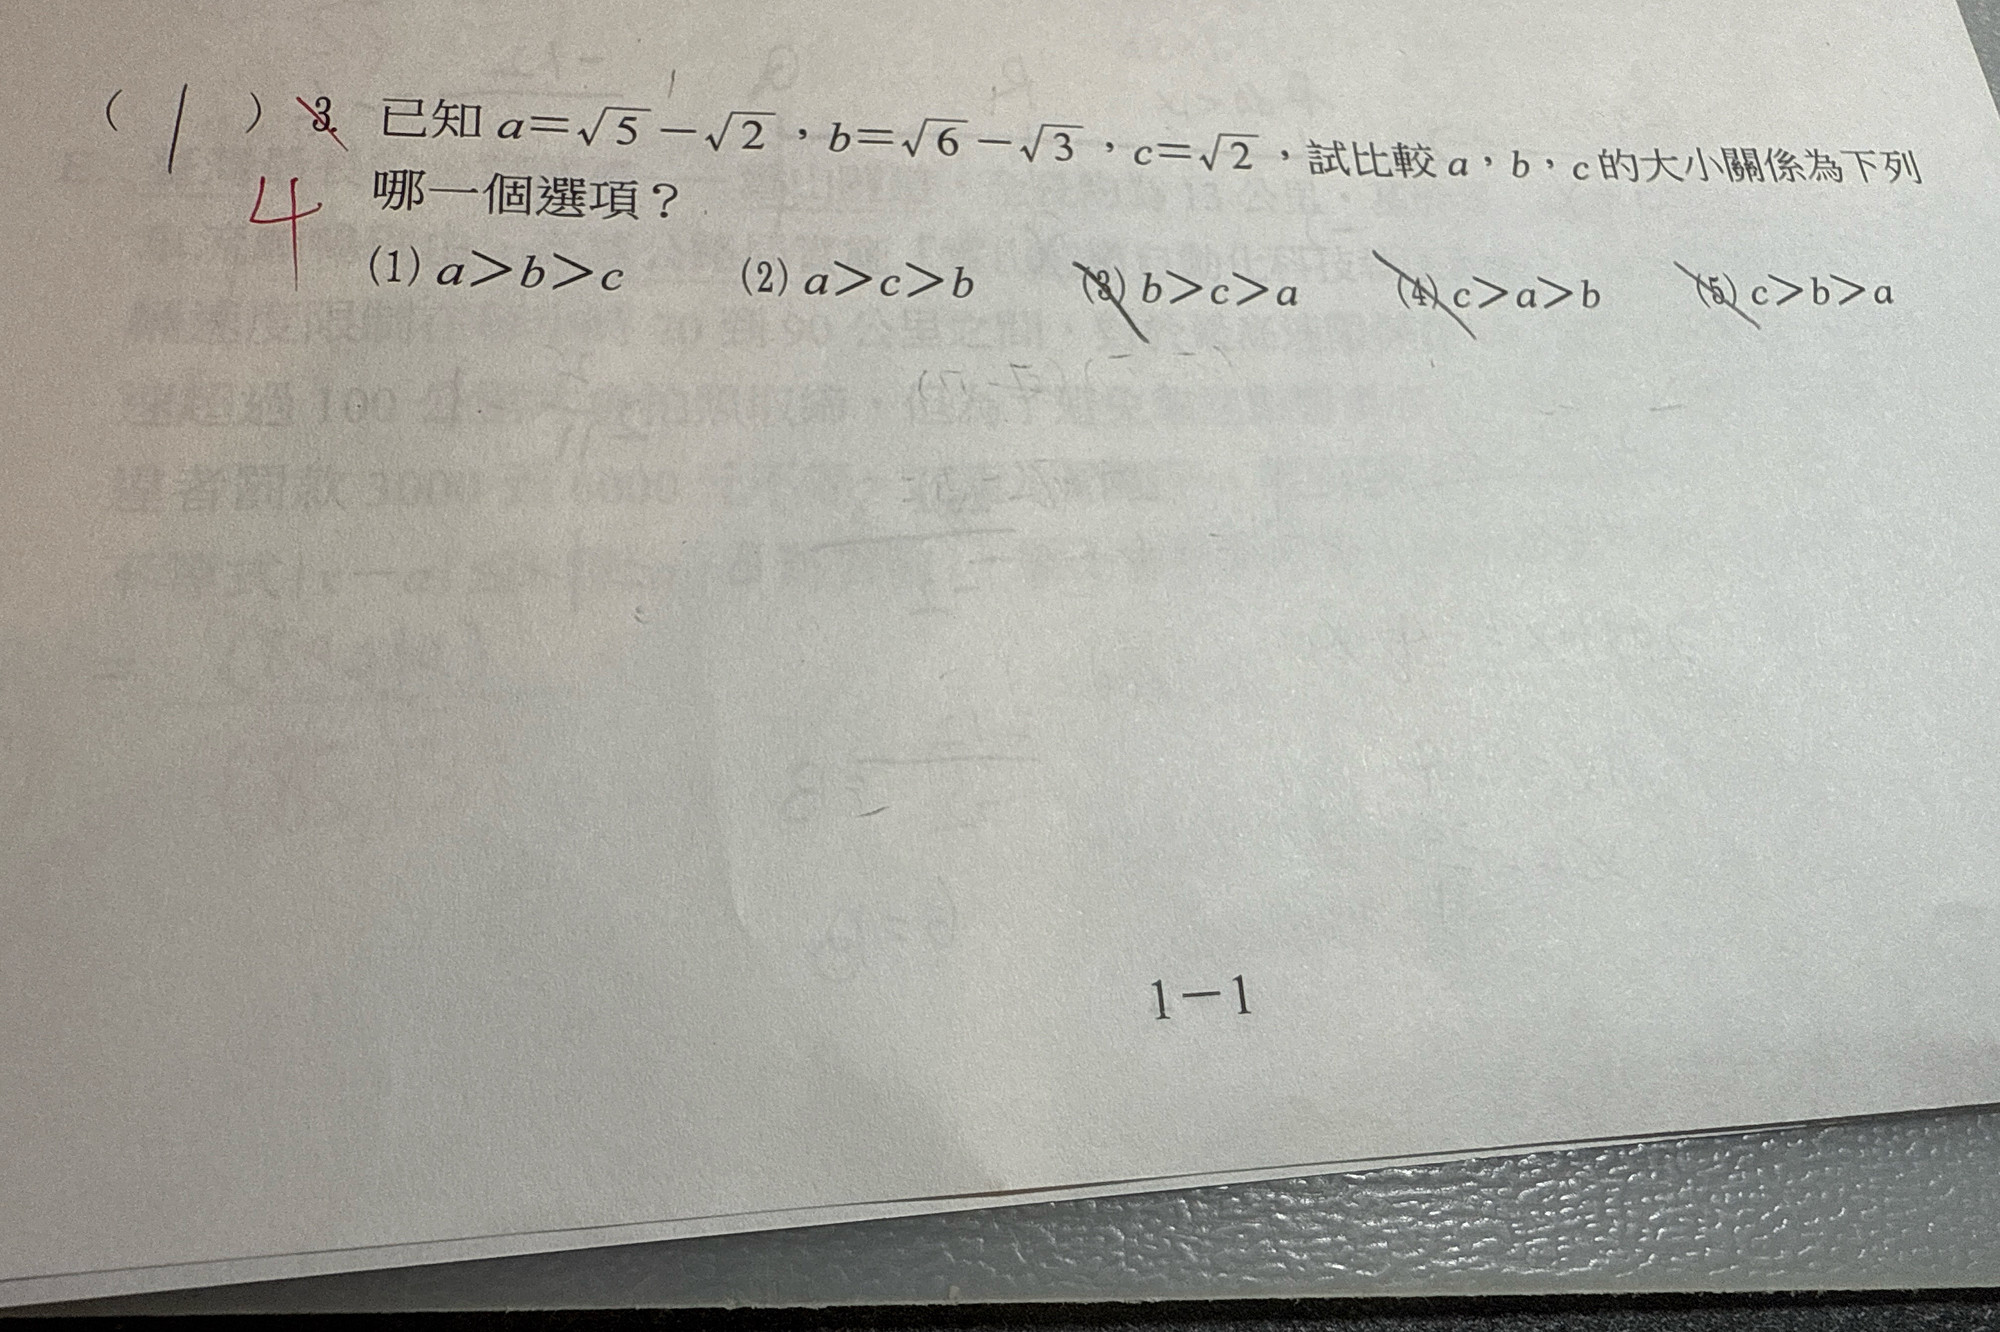 ( 1 ) 3. 已知 a=√5-√2,b=√6-√3,c=√2,試比較 a,b,c 的大小關係為下列
4 哪一個選項?
(1) a>b>c (2) a>c>b (3) b>c>a (4) c>a>b (5) c>b>a
1-1